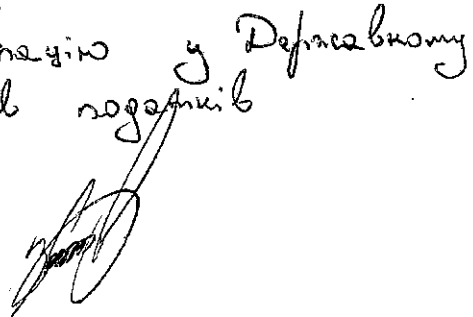 рацію у Державному
в податків